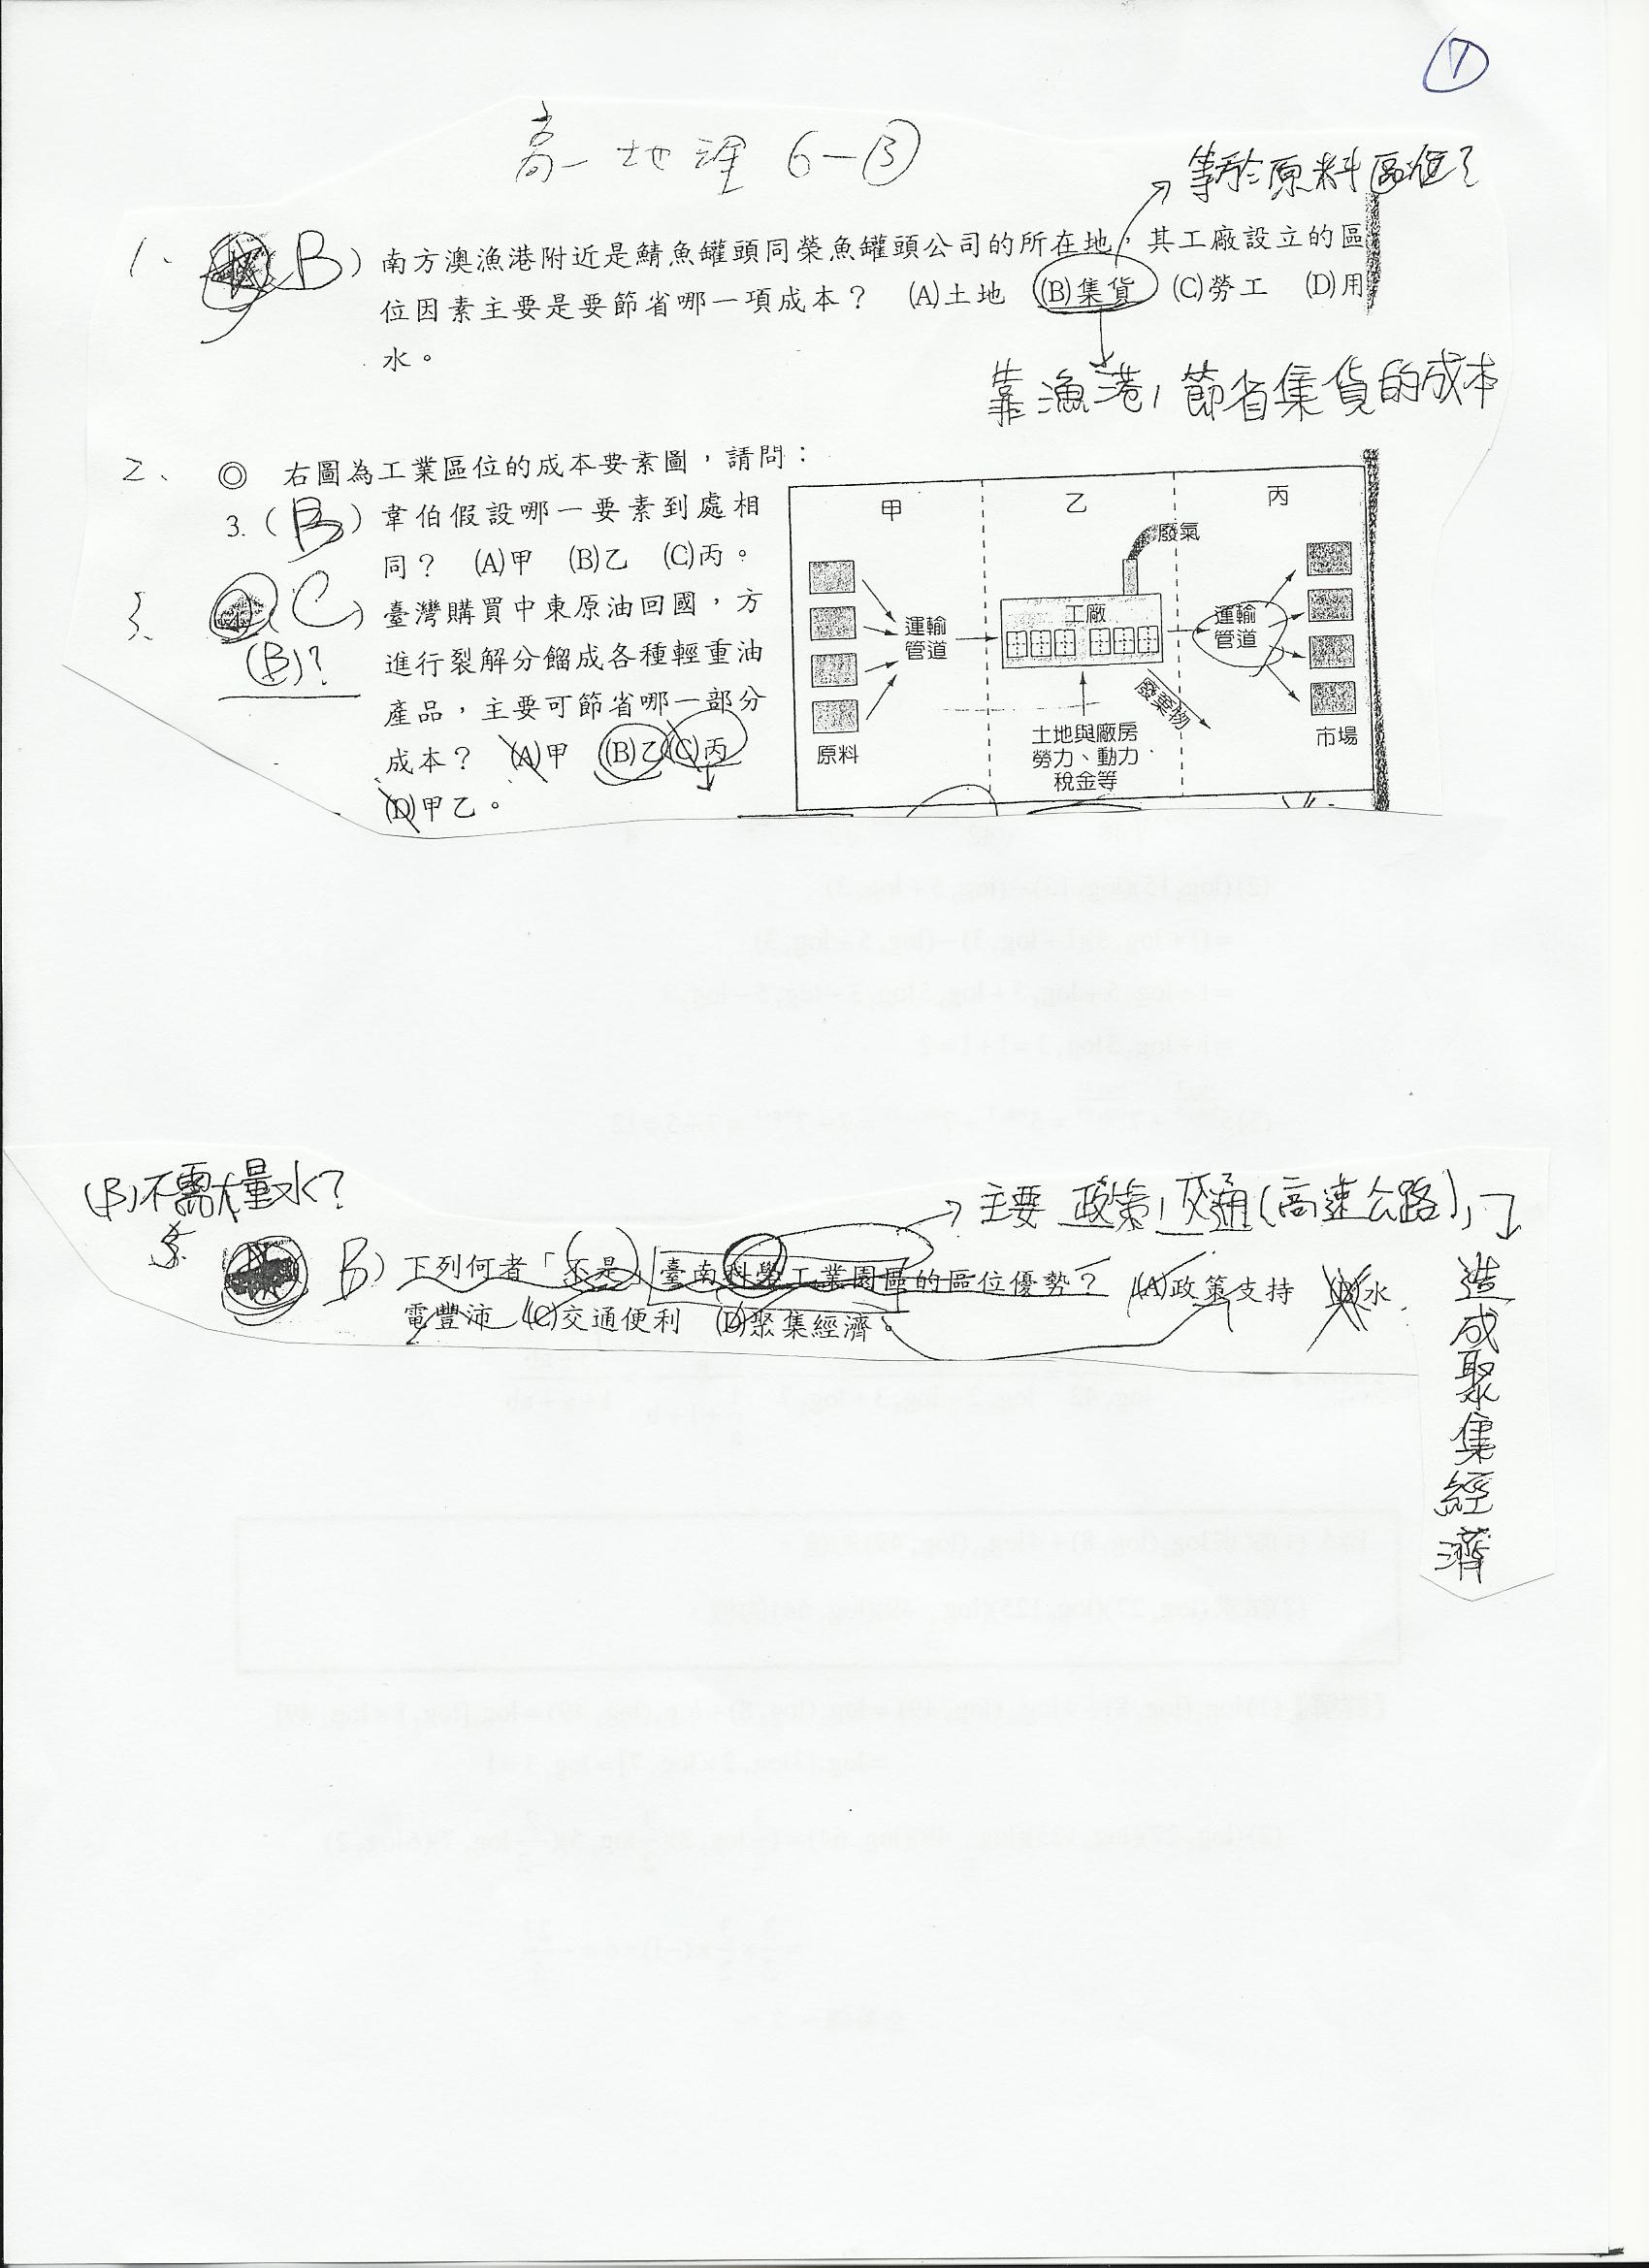 7
高一地理 6-③
等於原料區位?
1、 B)南方澳漁港附近是鯖魚罐頭同榮魚罐頭公司的所在地,其工廠設立的區
位因素主要是要節省哪一項成本? (A)土地 (B)集貨 (C)勞工 (D)用
水。
靠漁港,節省集貨的成本
2、 ◎ 右圖為工業區位的成本要素圖,請問:
3.(B)韋伯假設哪一要素到處相
同? (A)甲 (B)乙 (C)丙。
3、 (C)臺灣購買中東原油回國,方
(B)? 進行裂解分餾成各種輕重油
產品,主要可節省哪一部分
成本? (A)甲 (B)乙 (C)丙
(D)甲乙。
甲 乙 丙
廢氣
工廠
運輸管道
運輸管道
廢棄物
原料
土地與廠房
勞力、動力
稅金等
市場
(B)不需大量水?
→主要 政策,交通(高速公路),
造成聚集經濟
B)下列何者「不是」臺南科學工業園區的區位優勢? (A)政策支持 (B)水
電豐沛 (C)交通便利 (D)聚集經濟。